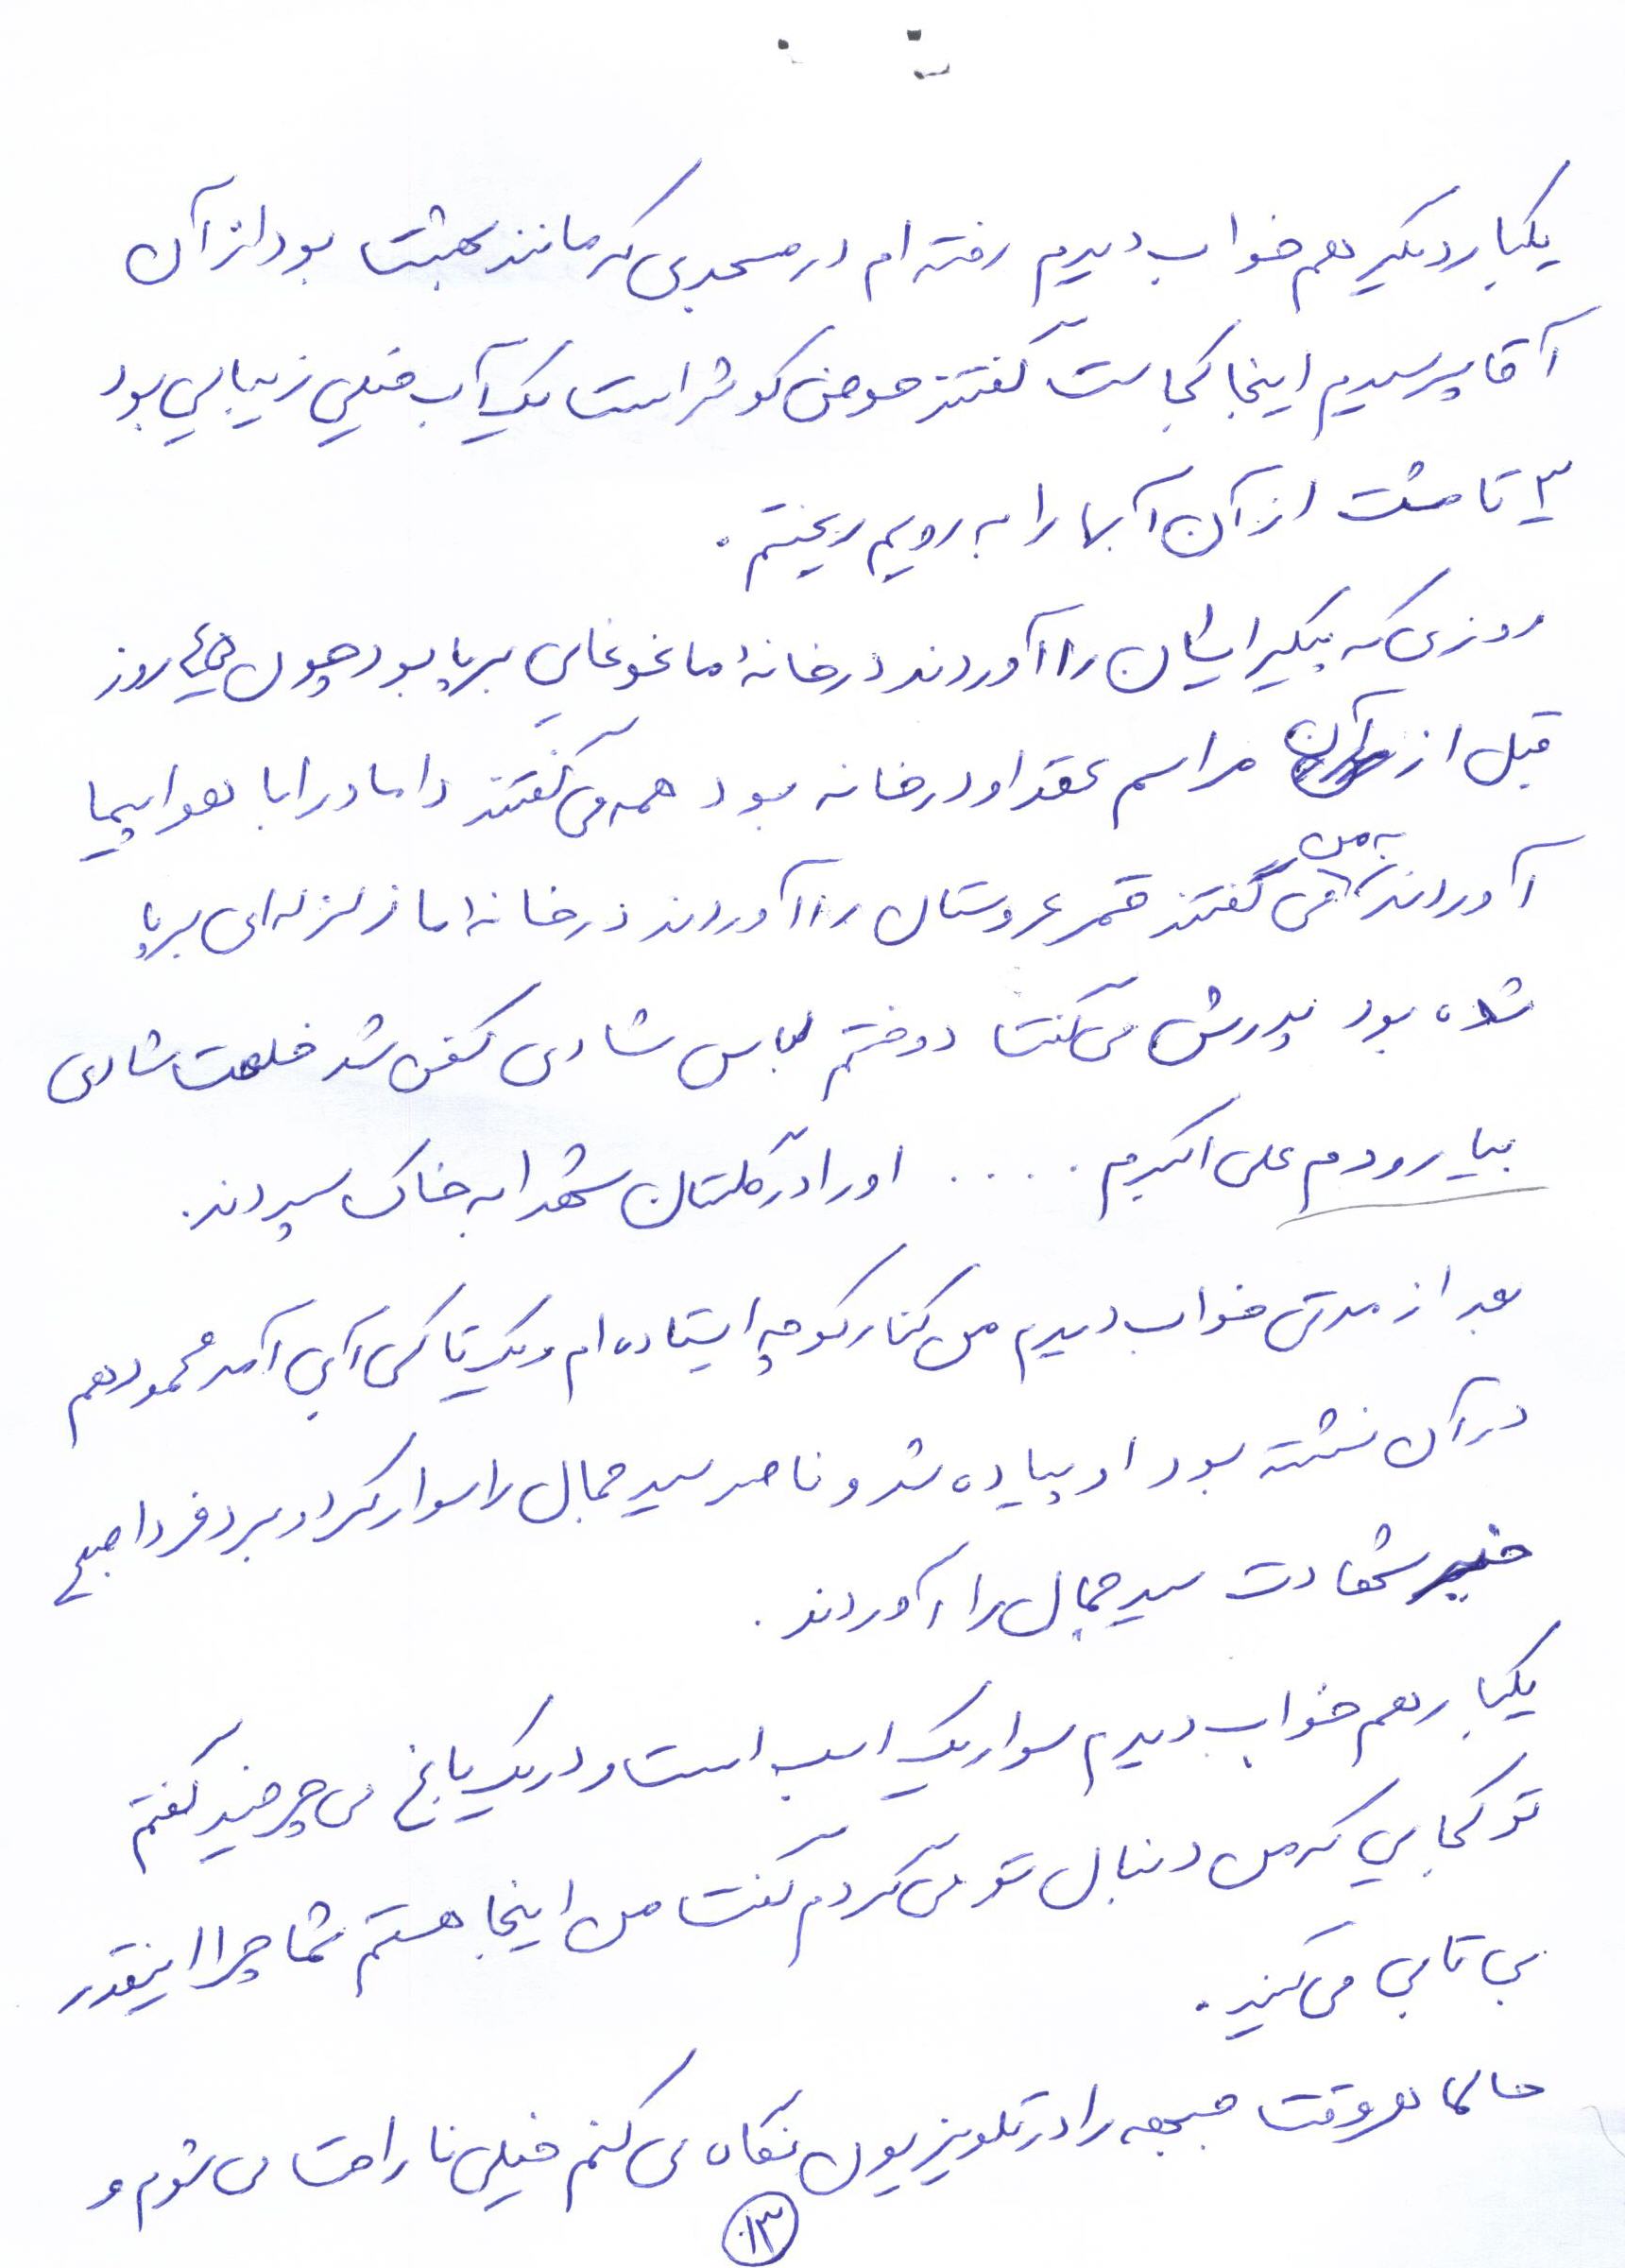 یکبار دیگر هم خواب دیدم رفته ام در مسجدی که مانند بهشت بود از آن
آقا پرسیدم اینجا کجاست گفتند حوض کوثر است یک آب خیلی زیبایی بود
۳ تا مشت از آن آبها را به رویم ریختم .
روزی که پیکر ایشان را آوردند در خانهٔ ما غوغایی برپا بود چون روز
قبل از آن مراسم عقد او در خانه بود همه می گفتند داماد را با هواپیما
آوردند به من می گفتند قمر عروستان را آوردند در خانه ما زلزله ای برپا
شده بود پدرش می گفت دوختم لباس شادی کفن شد خلعت شادی
بیا رودم علی اکبرم ..... او را در گلستان شهدا به خاک سپردند .
بعد از مدتی خواب دیدم من کنار کوچه ایستاده ام و یک تاکسی آبی آمد محمود هم
در آن نشسته بود او پیاده شد و ناصر سید جمال را سوار کرد و برد فردا صبح
خبر شهادت سید جمال را آوردند .
یکبار هم خواب دیدم سوار یک اسب است و در یک باغ می چرخید گفتم
تو کجایی که من دنبال تو می گردم گفت من اینجا هستم شما چرا اینقدر
بی تابی می کنید .
حالا هر وقت جبهه را در تلویزیون نگاه می کنم خیلی ناراحت می شوم و
۱۳